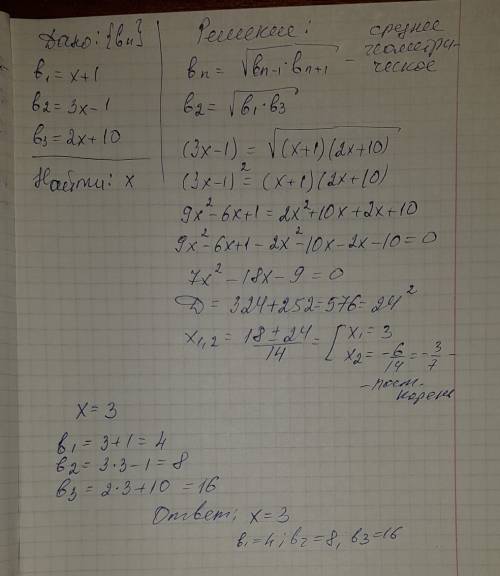 Дано: {bn}
b1 = x+1
b2 = 3x-1
b3 = 2x+10
Найти: x
Решение:
bn = √(bn-1·bn+1) - среднее
геометри-
ческое
b2 = √(b1·b3)
(3x-1) = √((x+1)(2x+10))
(3x-1)² = (x+1)(2x+10)
9x²-6x+1 = 2x²+10x+2x+10
9x²-6x+1-2x²-10x-2x-10=0
7x²-18x-9=0
D = 324+252=576=24²
x1,2 = (18±24)/14 = [ x1=3
x2 = -6/14 = -3/7 -
-пост.
корень
x=3
b1 = 3+1=4
b2 = 3·3-1=8
b3 = 2·3+10=16
Ответ: x=3
b1=4; b2=8, b3=16